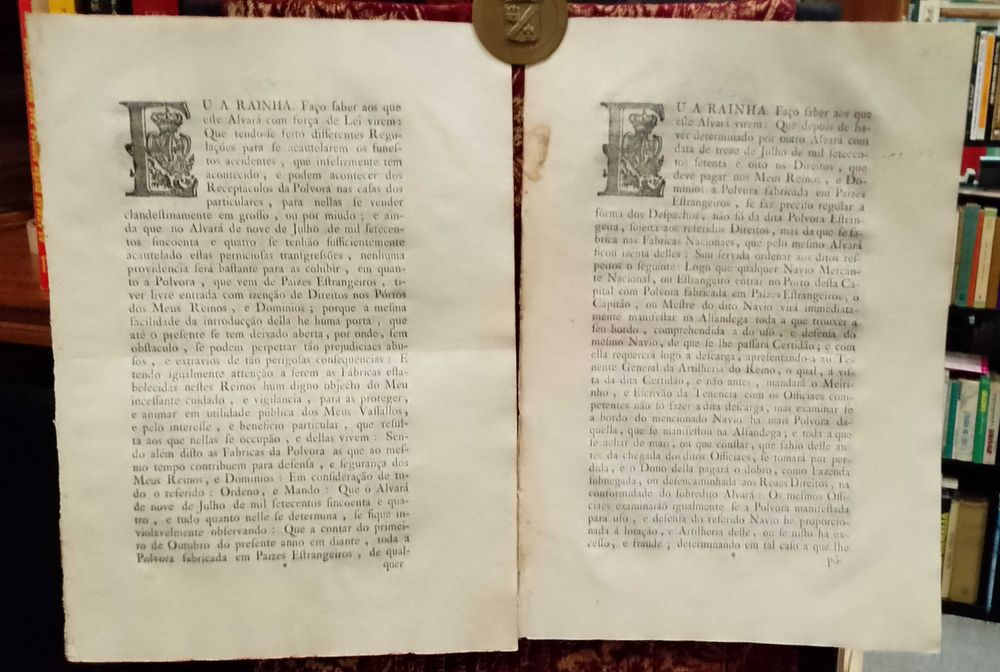 EU A RAINHA. Faço ſaber aos que
eſte Alvará com força de Lei virem:
Que tendo-ſe feito differentes Regu-
lações para ſe acautelarem os funeſ-
tos accidentes, que infelizmente tem
acontecido, e podem acontecer dos
Receptaculos da Polvora nas caſas dos
particulares, para nellas ſe vender
clandeſtinamente em groſſo, ou por miudo; e ain-
da que no Alvará de nove de Julho de mil ſetecen-
tos ſincoenta e quatro ſe tenhão ſufficientemente
acautelado eſtas pernicioſas tranſgreſsões, nenhuma
providencia ſerá baſtante para as cohibir, em quan-
to a Polvora, que vem de Paizes Eſtrangeiros, ti-
ver livre entrada com izenção de Direitos nos Pórtos
dos Meus Reinos, e Dominios; porque a meſma
facilidade da introducção della he huma porta, que
até o preſente ſe tem deixado aberta, por onde, ſem
obſtaculo, ſe podem perpetrar tão prejudiciaes abu-
ſos, e extravios de tão perigoſas conſequencias: E
tendo igualmente attenção a ſerem as Fábricas eſta-
belecidas neſtes Reinos hum digno objecto do Meu
inceſſante cuidado, e vigilancia, para as proteger,
e animar em utilidade pública dos Meus Vaſſallos,
e pelo intereſſe, e beneficio particular, que reſul-
ta aos que nellas ſe occupão, e dellas vivem: Sen-
do além diſto as Fabricas da Polvora as que ao meſ-
mo tempo contribuem para defenſa, e ſegurança dos
Meus Reinos, e Dominios: Em conſideração de tu-
do o referido: Ordeno, e Mando: Que o Alvará
de nove de Julho de mil ſetecentos ſincoenta e qua-
tro, e tudo quanto nelle ſe determina, ſe fique in-
violavelmente obſervando: Que a contar do primei-
ro de Outubro do preſente anno em diante, toda a
Polvora fabricada em Paizes Eſtrangeiros, de qual-
*
quer
EU A RAINHA. Faço ſaber aos que
eſte Alvará virem: Que depois de ha-
ver determinado por outro Alvará com
data de treze de Julho de mil ſetecen-
tos ſetenta e oito os Direitos, que
deve pagar nos Meus Reinos, e Do-
minios a Polvora fabricada em Paizes
Eſtrangeiros, ſe faz preciſo regular a
fórma dos Deſpachos, não ſó da dita Polvora Eſtran-
geira, ſujeita aos referidos Direitos, mas da que ſe fa-
brica nas Fabricas Nacionaes, que pelo meſmo Alvará
ficou izenta delles: Sou ſervida ordenar aos ditos reſ-
peitos o ſeguinte: Logo que qualquer Navio Mercan-
te Nacional, ou Eſtrangeiro entrar no Porto deſta Ca-
pital com Polvora fabricada em Paizes Eſtrangeiros, o
Capitão, ou Meſtre do dito Navio virá immediata-
mente manifeſtar na Alfandega toda a que trouxer a
ſeu bordo, comprehendida a do uſo, e defenſa do
meſmo Navio, de que ſe lhe paſſará Certidão; e com
ella requererá logo a deſcarga, apreſentando-a ao Te-
nente General da Artilheria do Reino, o qual, á viſ-
ta da dita Certidão, e não antes, mandará o Meiri-
nho, e Eſcrivão da Tenencia com os Officiaes com-
petentes não ſó fazer a dita deſcarga, mas examinar ſe
a bordo do mencionado Navio ha mais Polvora da-
quella, que ſe manifeſtou na Alfandega; e toda a que
ſe achar de mais, ou que conſtar, que ſahio delle an-
tes da chegada dos ditos Officiaes, ſe tomará por per-
dida, e o Dono della pagará o dobro, como Fazenda
ſubnegada, ou deſencaminhada aos Reaes Direitos, na
conformidade do ſobredito Alvará: Os meſmos Offi-
ciaes examinaráõ igualmente ſe a Polvora manifeſtada
para uſo, e defenſa do referido Navio he proporcio-
nada á lotação, e Artilheria delle, ou ſe niſto ha ex-
ceſſo, e fraude; determinando em tal caſo a que lhe
*
pó-